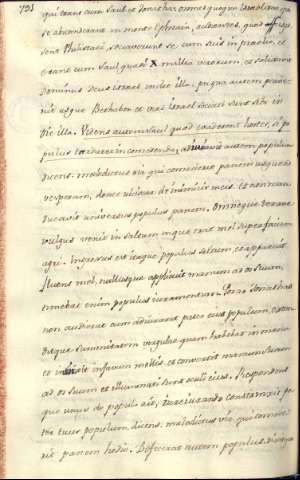 793
qui erant cum Saul et Jonatha: omnes quoque Israelitæ qui
se absconderant in monte Ephraim, audientes quod
sent Philistæi, sociaverunt se cum suis in prælio, et
erant cum Saul, quasi X millia virorum, et salvavit
Dominus Deus Israel in die illa: pugna autem perve-
nit usque Bethaven et viri Israel sociati sunt sibi in
die illa. Videns autem Saul quod
adiuravit autem populum
dicens: maledictus vir qui comederit panem usque ad
vesperam, donec ulciscar de inimicis meis. Et non man-
ducavit universus populus panem. Omneque terræ
vulgus venit in saltum in quo erat mel super faciem
agri. Ingressus est itaque populus saltum, et apparuit
fluens mel, nullusque applicuit manum ad os suum,
timebat enim populus iuramentum. Porro Jonathas
non audierat cum adiuraret pater eius populum, exten-
ditque summitatem virgulæ quam habebat in manu
et in favum mellis, et convertit manum suam
ad os suum et illuminati sunt oculi eius. Respondens-
que unus de populo ait, iureiurando constrinxit pa-
ter tuus populum, dicens: maledictus vir qui comede-
rit panem hodie. Defecerat autem populus, dixitque